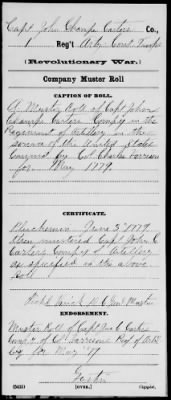 Capt John Champe Carters Co.,
Reg't Arty Cont Troops
(Revolutionary War.)
Company Muster Roll
CAPTION OF ROLL.
A Muster Roll of Capt John
Champe Carters Compy in the
Regiment of Artillery in the
service of the United States
Comm'd by Col Charles Harrison
for May 1779.
CERTIFICATE.
June 3rd 1779.
then mustered Capt John C
Carters Compy of Artillery
as specified in the above
Roll
D C Gen'l Musters
ENDORSEMENT.
Muster Roll of Capt Jno C Carter
Comp'y of Col Harrisons Reg't of Artil
for May '79
(over.)
Copyist.